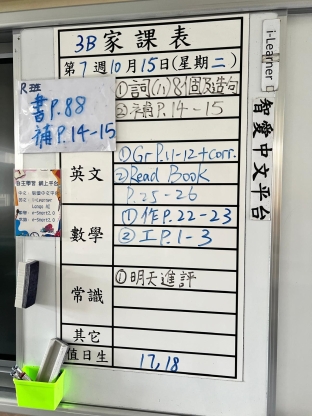 3B家課表
第7週10月15日(星期二)
R班
書P.88
補P.14-15
①詞(八)8個及造句
②補P.14-15
英文
①Gr P.11-12+corr.
②Read Book
P.25-26
數學
①作P.22-23
②工P.1-3
常識
①明天進評
其它
值日生
17,18
i-Learner
智愛中文平台